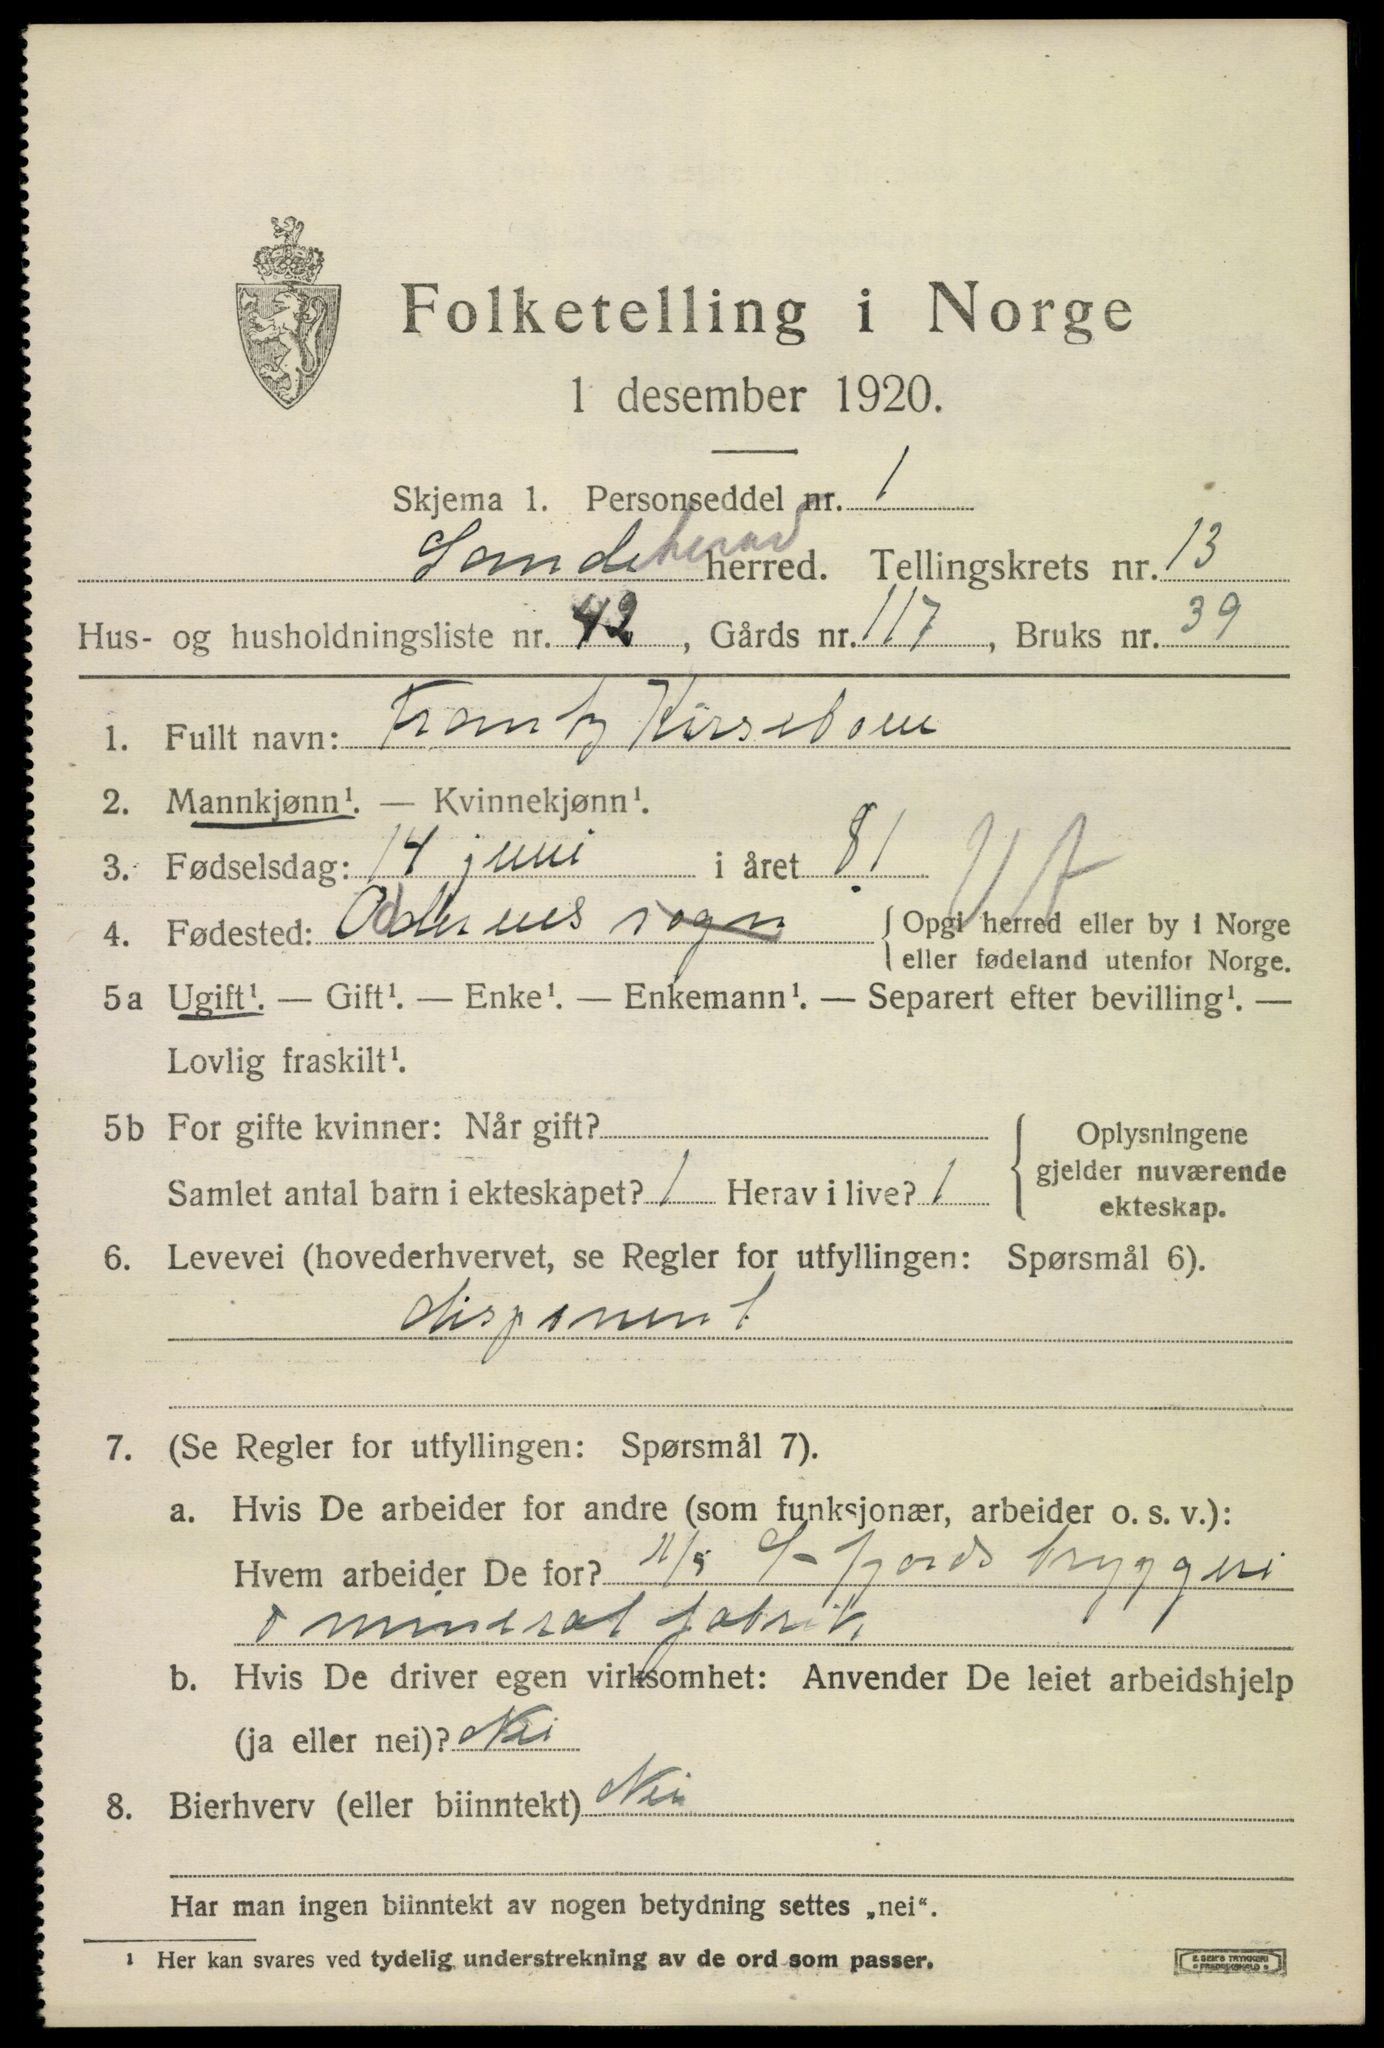 Folketelling i Norge
1 desember 1920.
Skjema 1. Personseddel nr. 1
Sandeherad herred. Tellingskrets nr. 13
Hus- og husholdningsliste nr. 42, Gårds nr. 117, Bruks nr. 39
1. Fullt navn: Frantz Kirsebom
2. Mannkjønn¹. — Kvinnekjønn¹.
3. Fødselsdag: 14 juni i året 81
4. Fødested: Oddernes sogn { Opgi herred eller by i Norge
eller fødeland utenfor Norge.
5a Ugift¹. — Gift¹. — Enke¹. — Enkemann¹. — Separert efter bevilling¹. —
Lovlig fraskilt¹.
5b For gifte kvinner: Når gift?
Samlet antal barn i ekteskapet? 1 Herav i live? 1
{ Oplysningene
gjelder nuværende
ekteskap.
6. Levevei (hovederhvervet, se Regler for utfyllingen: Spørsmål 6).
disponent
7. (Se Regler for utfyllingen: Spørsmål 7).
a. Hvis De arbeider for andre (som funksjonær, arbeider o. s. v.):
Hvem arbeider De for? A/S S-fjords bryggeri
& mineral fabrik
b. Hvis De driver egen virksomhet: Anvender De leiet arbeidshjelp
(ja eller nei)? Nei
8. Bierhverv (eller biinntekt) Nei
Har man ingen biinntekt av nogen betydning settes „nei“.
¹ Her kan svares ved tydelig understrekning av de ord som passer.